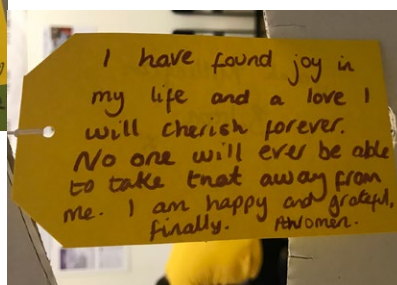 I have found joy in
my life and a love I
will cherish forever.
No one will ever be able
to take that away from
me. I am happy and grateful,
finally. Awomen.